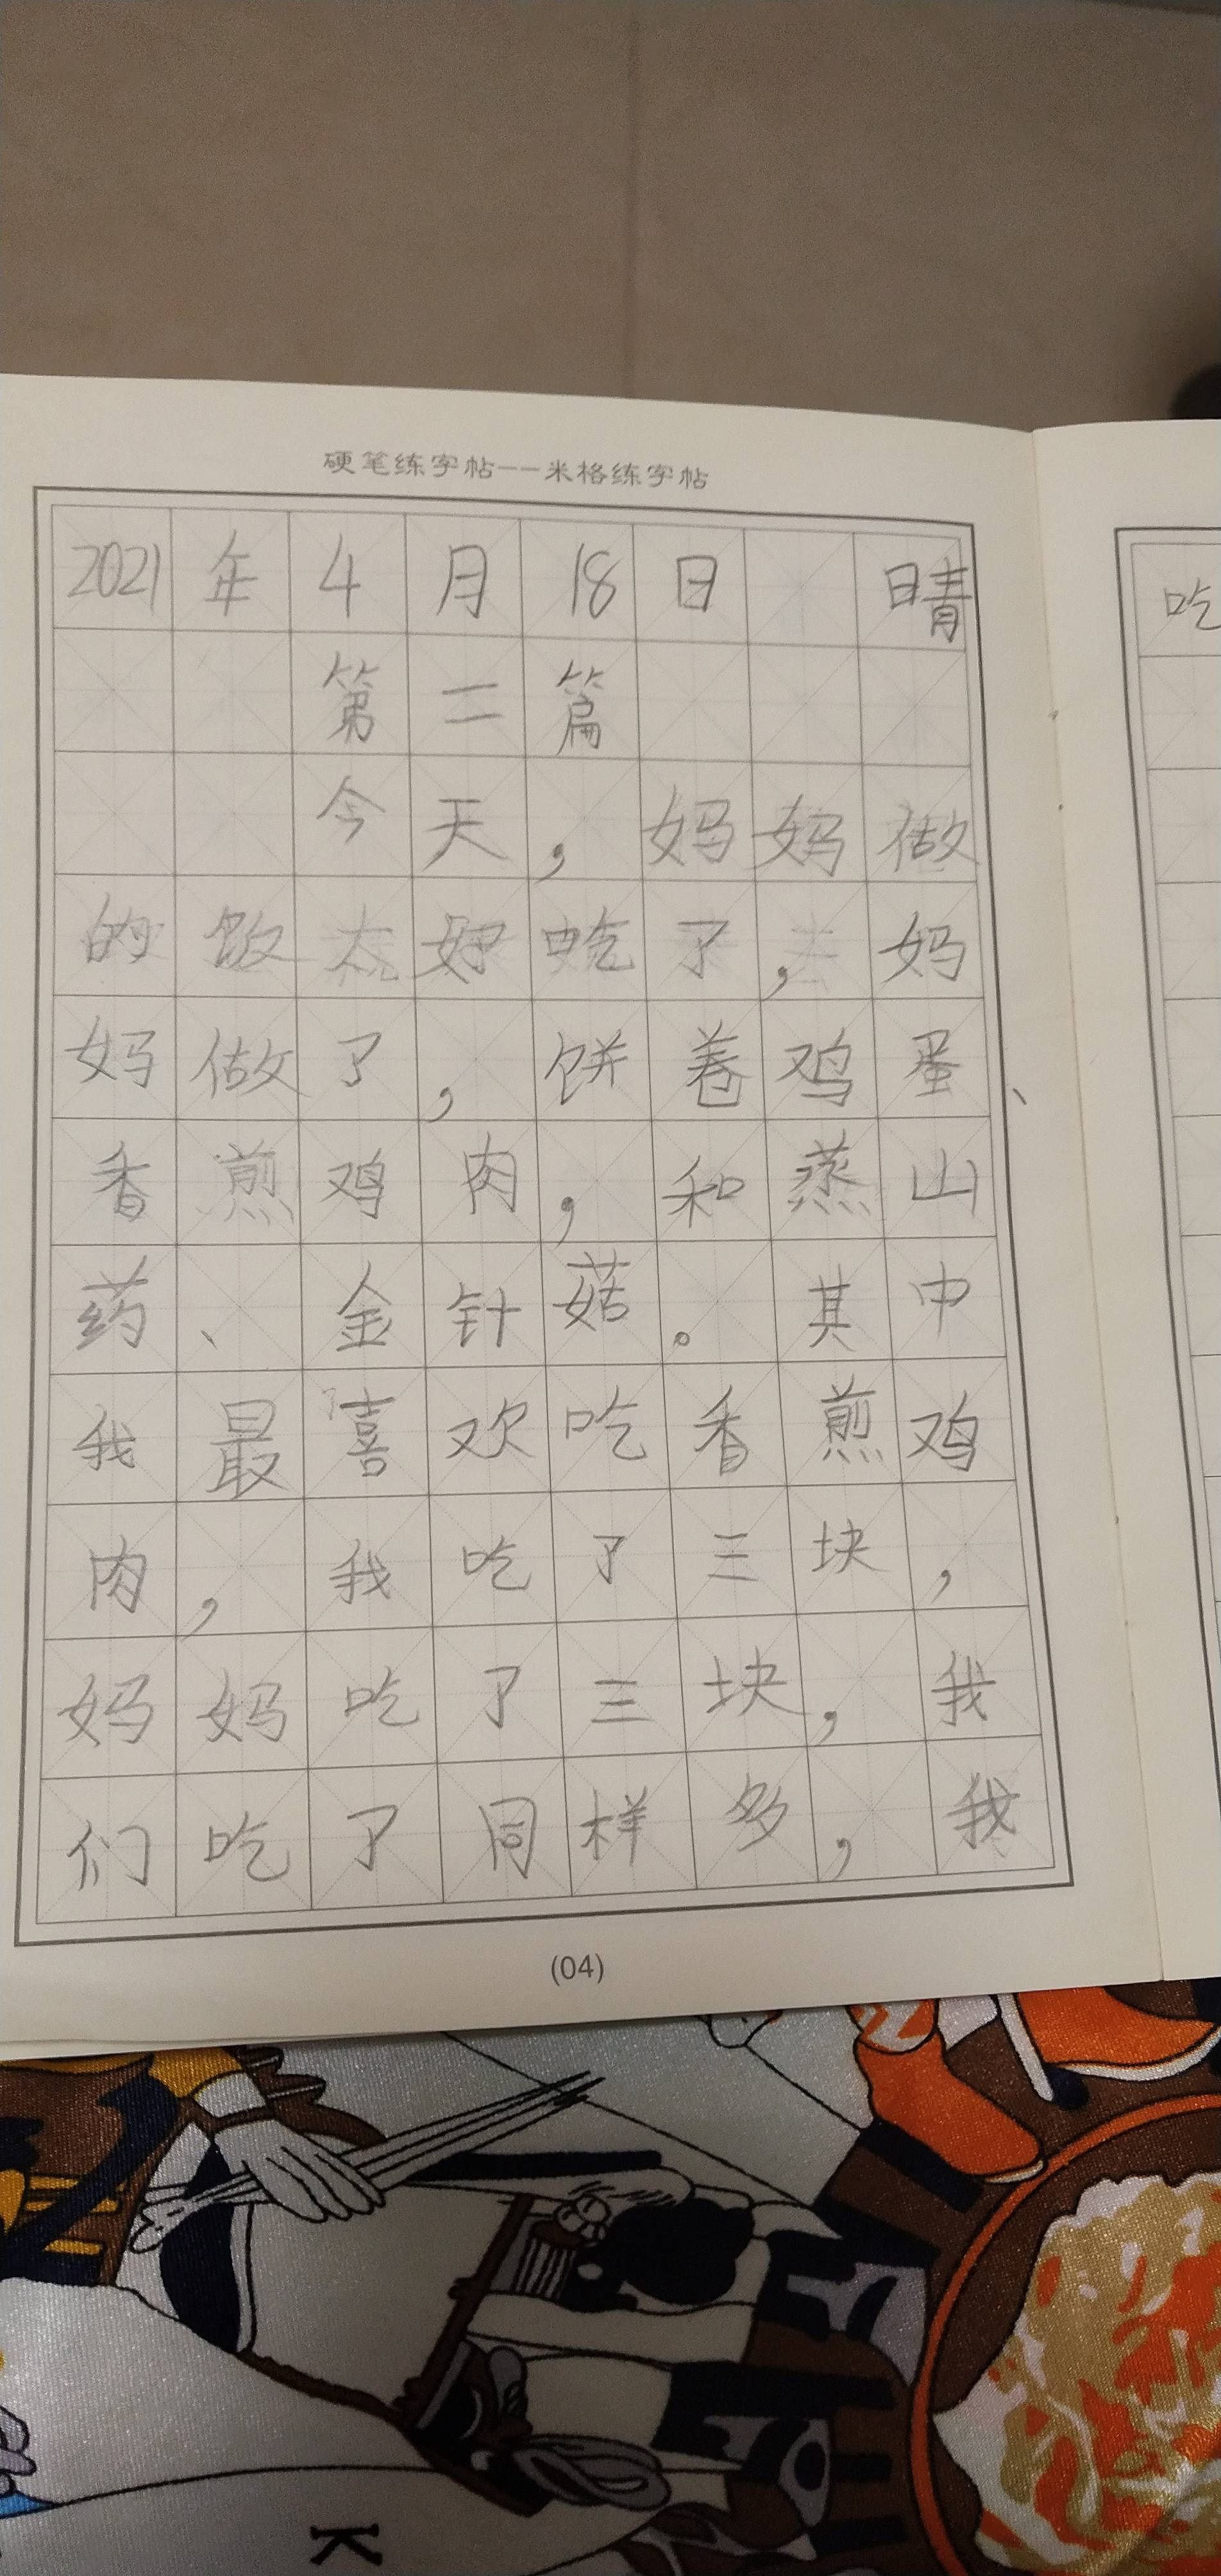 硬笔练字帖--米格练字帖
2021年4月18日 晴
第二篇
今天，妈妈做
的饭太好吃了，妈
妈做了，饼卷鸡蛋、
香煎鸡肉，和蒸山
药、金针菇。其中
我最喜欢吃香煎鸡
肉，我吃了三块，
妈妈吃了三块，我
们吃了同样多，我
(04)
吃
K